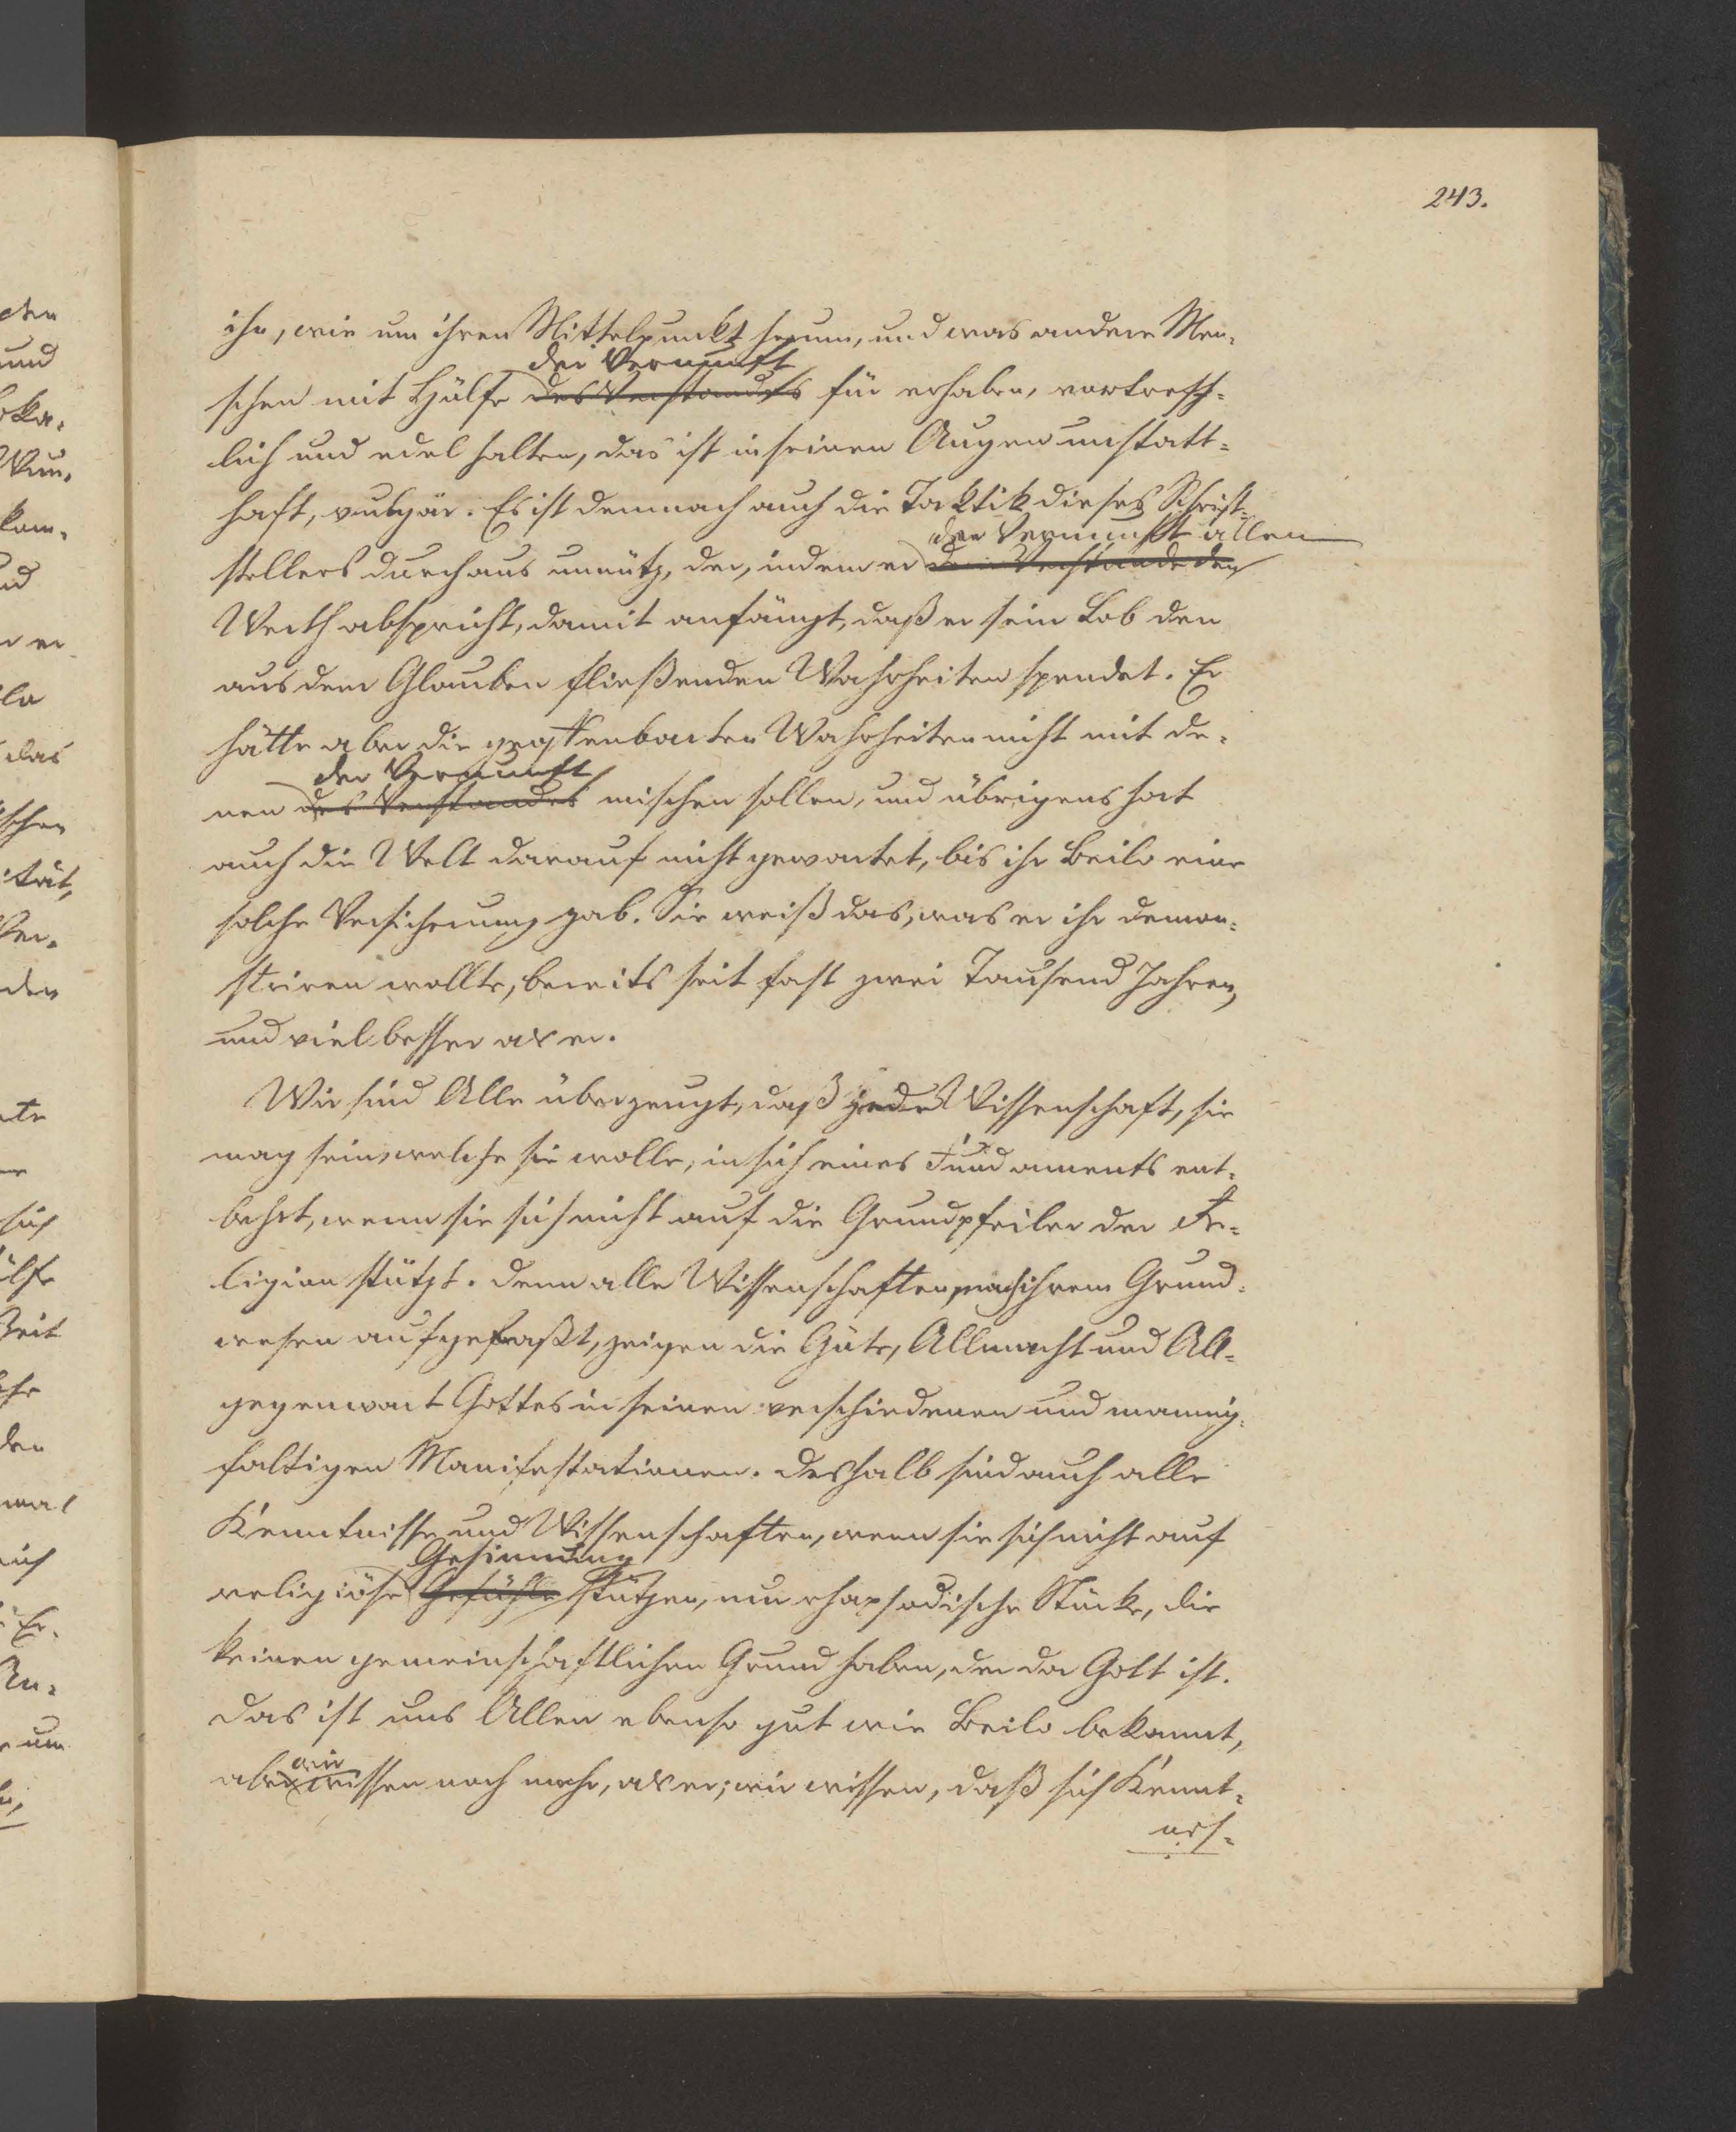 243.
ihn, wie um ihren Mittelpunkt herum, und was andere Men-
der Vernunft
schen mit Hülfe des Verstandes für erhaben, vortreff-
lich und edel halten, das ist in seinen Augen unstatt-
haft, vulgär. Es ist demnach auch die Taktik dieses Schrift-
der Vernunft allen
stellers durchaus unnütz, der, indem er dem Verstande den
Werth abspricht, damit anfängt, daß er sein Lob den
aus dem Glauben fließenden Wahrheiten spendet. Er
hätte aber die geoffenbarten Wahrheiten nicht mit de-
der Vernunft
nen des Verstandes mischen sollen, und übrigens hat
auch die Welt darauf nicht gewartet, bis ihr Beilo eine
solche Versicherung gab. Sie weiß das, was er ihr demon-
striren wollte, bereits seit fast zwei Tausend Jahren,
und viel besser als er.
Wir sind Alle überzeugt, daß jede Wissenschaft, sie
mag sein, welche sie wolle, in sich eines Fundaments ent-
behrt, wenn sie sich nicht auf die Grundpfeiler der Re-
ligion stützt. Denn alle Wissenschaften, nach ihrem Grund-
wesen aufgefaßt, zeigen die Güte, Allmacht und All-
gegenwart Gottes in seinen verschiedenen und mannig-
faltigen Manifestationen. Deshalb sind auch alle
Kenntnisse und Wissenschaften, wenn sie sich nicht auf
Gesinnung
religiöse Gefühle stützen, nur rhapsodische Stücke, die
keinen gemeinschaftlichen Grund haben, der da Gott ist.
Das ist uns Allen ebenso gut wie Beilo bekannt,
wir
aber wissen noch mehr, als er; wir wissen, daß sich Kennt-